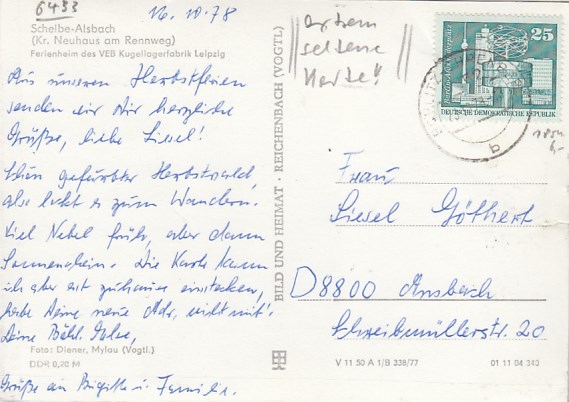 6433
16.10.78
Scheibe-Alsbach
(Kr. Neuhaus am Rennweg)
Ferienheim des VEB Kugellagerfabrik Leipzig
Aus unseren Herbstferien
senden wir Dir herzliche
Grüße, liebe Liesel!
Schön gefärbter Herbstwald,
also lockt es zum Wandern.
Viel Nebel früh, aber dann
Sonnenschein. Die Karte kann
ich aber erst zuhause einstecken,
habe Deine neue Adr. nicht mit.
Deine
Foto: Diener, Mylau (Vogtl.)
DDR 0,20 M
Grüße an Brigitte u. Familie.
BILD UND HEIMAT · REICHENBACH (VOGTL)
extrem
seltene
Karte!
25
DEUTSCHE DEMOKRATISCHE REPUBLIK
b
Frau
Liesel Göthert
D8800 Ansbach
Schreibmüllerstr. 20
V 11 50 A 1/B 338/77
01 11 04 340